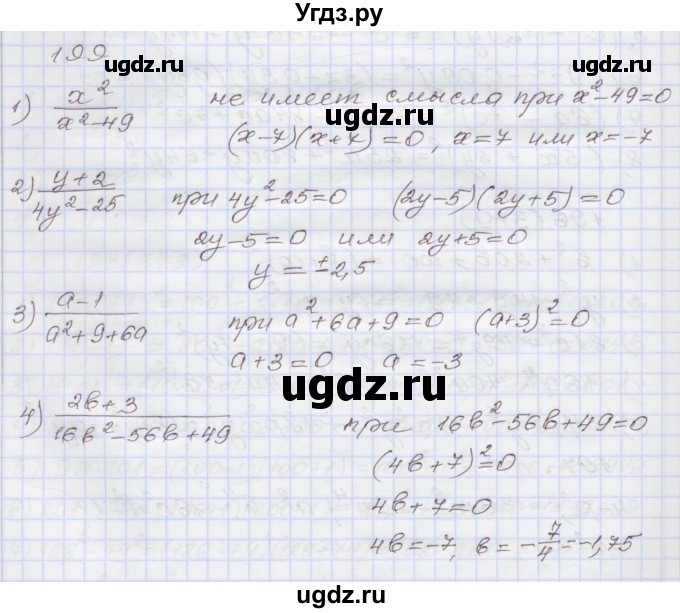 Угдз.ру
199
ugdz.ru ugdz.ru
1) x²/(x²-49) не имеет смысла при x²-49=0
(x-7)(x+7)=0, x=7 или x=-7
ugdz.ru
2) (y+2)/(4y²-25) при 4y²-25=0 (2y-5)(2y+5)=0
2y-5=0 или 2y+5=0
y=±2,5
ugdz.ru ugdz.ru
3) (a-1)/(a²+9+6a) при a²+6a+9=0 (a+3)²=0
a+3=0 a=-3
ugdz.ru
4) (2b+3)/(16b²-56b+49) при 16b²-56b+49=0
(4b+7)²=0
4b+7=0
4b=-7, b=-7/4=-1,75
ugdz.ru ugdz.ru
Угдз.ру